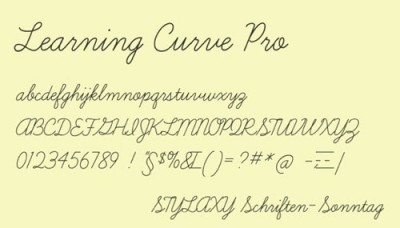 Learning Curve Pro
abcdefghijklmnopqrstuvwxyz
ABCDEFGHIJKLMNOPQRSTUVWXYZ
0123456789 ! "§$%&£()=?#*@ -–—|
STYLAXY Schriften-Sonntag